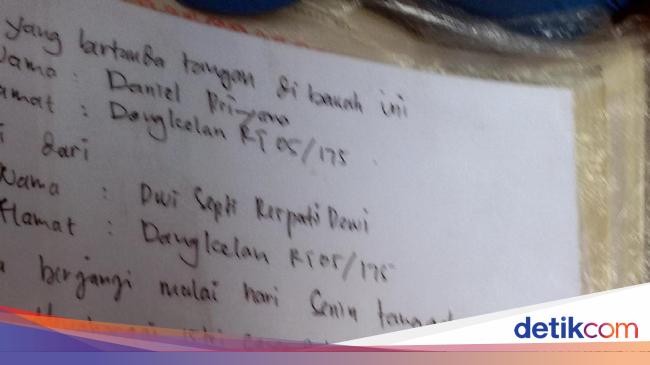 yang bertanda tangan di bawah ini
Nama : Daniel Priyono
amat : Dongkelan RT 05/175
i dari
Nama : Dwi Septi Rerpati Dewi
Alamat : Dongkelan RT 05/175
berjangi mulai hari Senin
detikcom